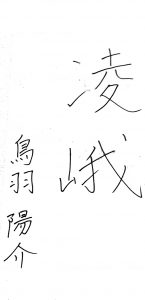 凌峨
鳥羽 陽介